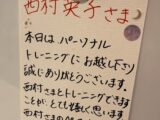 西村英子さま
本日はパーソナル
トレーニングにお越し下さり
誠にありがとうございます。
西村さまとトレーニングできます
ことが とても嬉しく思います
西村さまの